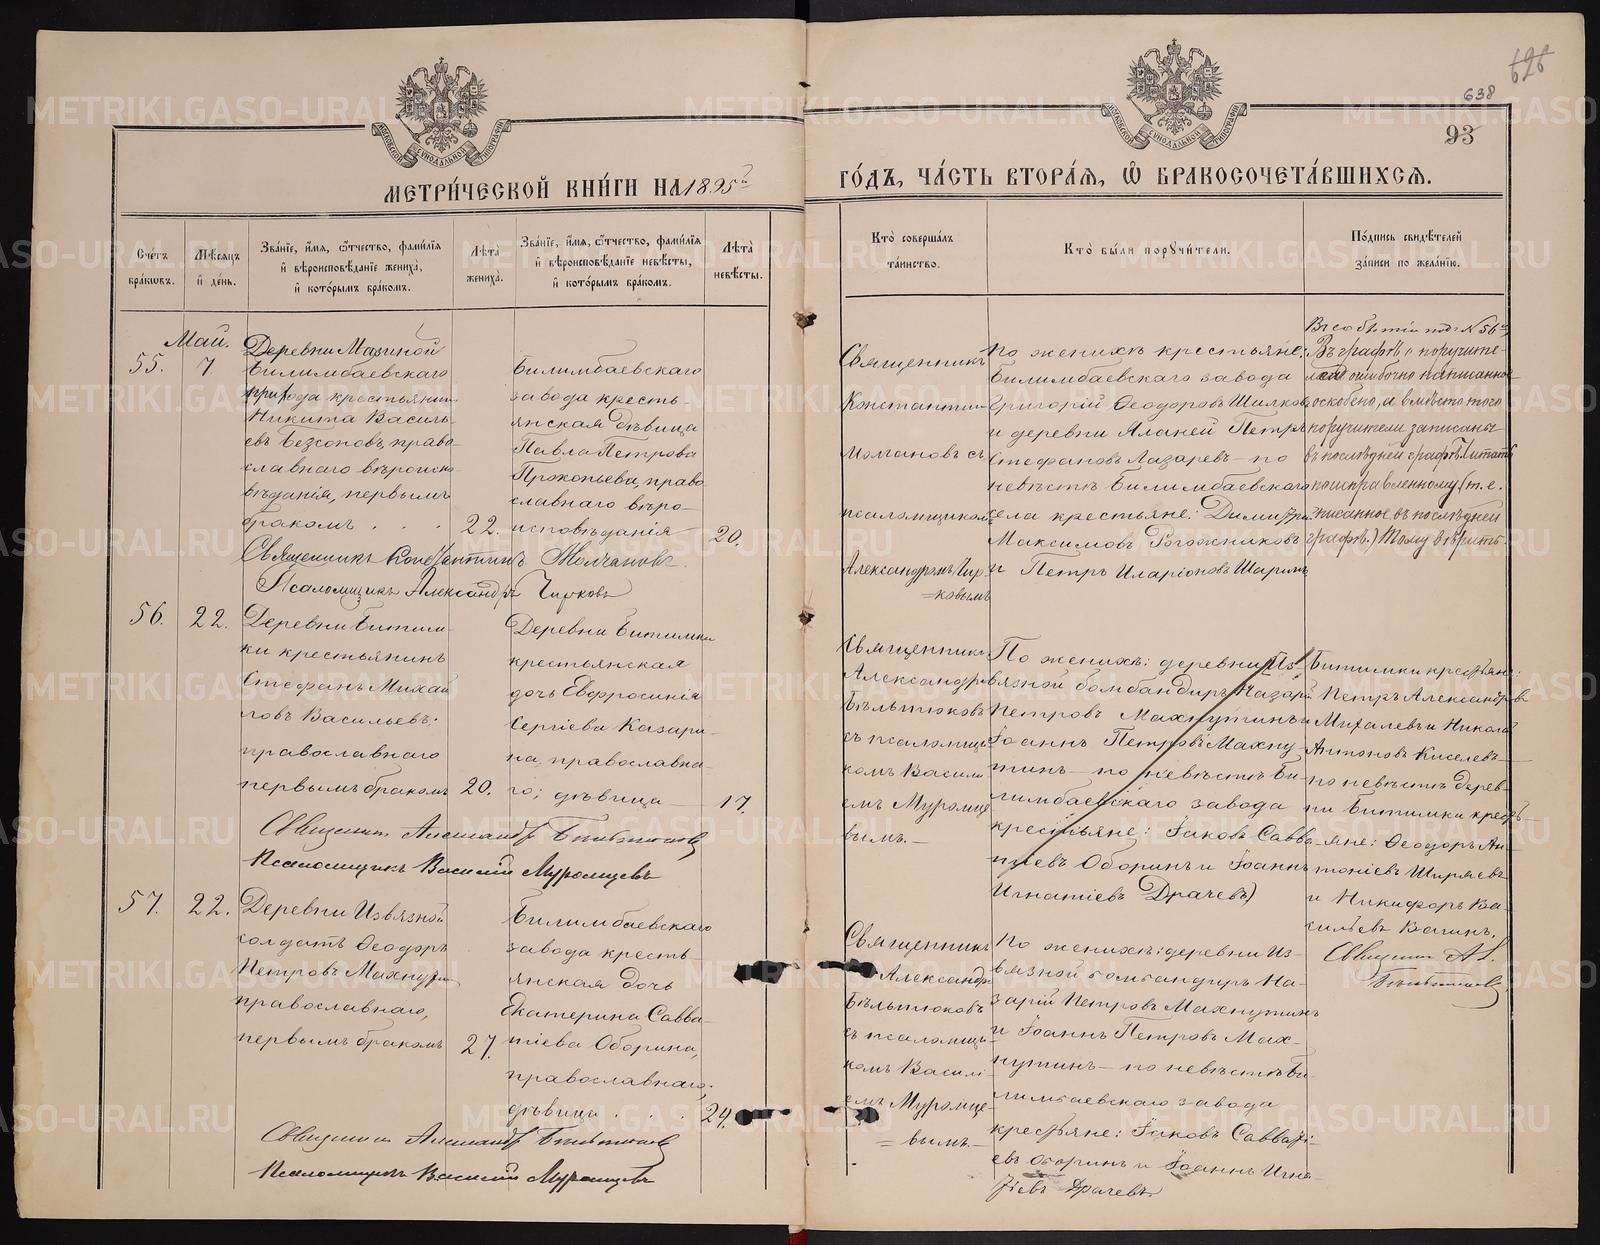 626
638
93
МЕТРИ́ЧЕСКОЙ КНИ́ГИ НА 1895й
ГО́ДЪ, ЧА́СТЬ ВТОРА́Я, Ѽ БРАКОСОЧЕТА́ВШИХСЯ.
Сче́тъ бра́кѡвъ.
Мѣ́сяцъ и҆ де́нь.
Зва́нїе, и҆́мя, ѻ҆́тчество, фами́лїя и҆ вѣроисповѣ́данїе жениха̀, и҆ кото́рымъ бра́комъ.
Лѣта̀ жениха̀.
Зва́нїе, и҆́мя, ѻ҆́тчество, фами́лїя и҆ вѣроисповѣ́данїе невѣ́сты, и҆ кото́рымъ бра́комъ.
Лѣта̀ невѣ́сты.
Кто̀ соверша́лъ та́инство.
Кто̀ бы́ли порꙋчи́тели.
По́дпись свидѣ́телей за́писи по жела́нїю.
Май.
55.
7
Деревни Мазиной
Билимбаевскаго
прихода крестьянин
Никита Василь-
евъ Безсоновъ, право
славнаго вѣроиспо
вѣданія, первымъ
бракомъ . . .
22.
Билимбаевскаго
завода кресть-
янская дѣвица
Павла Петрова
Прокопьева, право
славнаго вѣро-
исповѣданія
20.
Священникъ Константинъ Молчановъ.
Псаломщикъ Александръ Чирковъ
Священникъ
Константин
Молчановъ съ
псаломщикомъ
Александромъ Чир-
=ковымъ
По женихѣ крестьяне:
Билимбаевскаго завода
Григорій Ѳеодоровъ Шилковъ
и деревни Аланей Петръ
Стефановъ Лазаревъ – по
невѣстѣ Билимбаевскаго
села крестьяне: Димитри
Максимовъ Рогожниковъ
и Петръ Иларіоновъ Шаринъ
Въ событіи подъ №56мъ
Въ графѣ о поручите-
ляхъ ошибочно написанное
оскоблено, и вмѣсто того
поручители записаны
въ послѣдней графѣ. Читать
по исправленному (т. е.
писанное въ послѣдней
графѣ.) Тому вѣрить
56.
22.
Деревни Битим-
ки крестьянинъ
Стефанъ Михай
ловъ Васильевъ:
православнаго
первымъ бракомъ
20.
Деревни Битимки
крестьянская
дочь Евфросинія
Сергіева Казари-
на, православна-
го; дѣвица
17.
Священник Александр Бѣльтюков
Псаломщикъ Василій Муромцевъ
Священникъ
Александръ
Бѣльтюковъ
съ псаломщи
комъ Васили
емъ Муромце
вымъ.–
По женихѣ: деревни Из-
вязной бомбандиръ Назарій
Петровъ Махнутинъ и
Іоаннъ Петровъ Махну-
тинъ – по невѣстѣ Би-
лимбаевскаго завода
крестьяне: Іаковъ Савва-
тіевъ Оборинъ и Іоаннъ
Игнатіевъ Драчевъ)
Битимки крестьяне:
Петръ Александровъ
Михалевъ и Николай
Антоновъ Киселевъ –
по невѣстѣ дерев-
ни Битимки кресть-
яне: Ѳеодоръ Ан-
тоніевъ Ширяевъ
и Никифоръ Ва-
сильевъ Вагинъ.
Священник Ал.
Бѣльтюков
57.
22.
Деревни Извязной
солдатъ Ѳеодоръ
Петровъ Махнутин
православнаго,
первымъ бракомъ
27.
Билимбаевскаго
завода кресть-
янская дочь
Екатерина Савва-
тіева Оборина,
православнаго;
дѣвица . . .
24.
Священник Александр Бѣльтюков
Псаломщикъ Василій Муромцевъ
Священникъ
Александръ
Бѣльтюковъ
съ псаломщи-
комъ Василі-
емъ Муромце-
=вымъ.–
По женихѣ: деревни Из-
вязной бомбандиръ На-
зарій Петровъ Махнутинъ
и Іоаннъ Петровъ Мах-
нутинъ – по невѣстѣ Би-
лимбаевскаго завода
крестьяне: Іаковъ Савваті-
евъ Оборинъ и Іоаннъ Игна-
тіевъ Драчевъ
METRIKI.GASO-URAL.RU